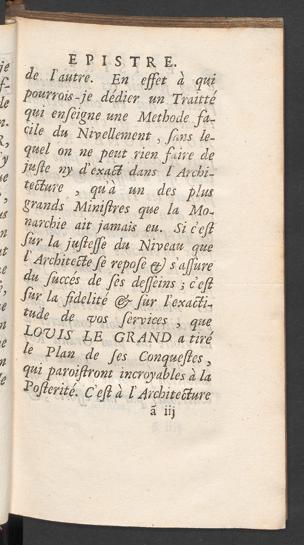 EPISTRE.
de l'autre. En effet à qui
pourrois-je dédier un Traitté
qui enſeigne une Methode fa-
cile du Nivellement, ſans le-
quel on ne peut rien faire de
juſte ny d'exact dans l'Archi-
tecture, qu'à un des plus
grands Miniſtres que la Mo-
narchie ait jamais eu. Si c'eſt
ſur la juſteſſe du Niveau que
l'Architecte ſe repoſe & s'aſſure
du ſuccés de ſes deſſeins; c'eſt
ſur la fidelité & ſur l'exacti-
tude de vos ſervices, que
LOUIS LE GRAND a tiré
le Plan de ſes Conqueſtes,
qui paroiſtront incroyables à la
Poſterité. C'eſt à l'Architecture
ã iij